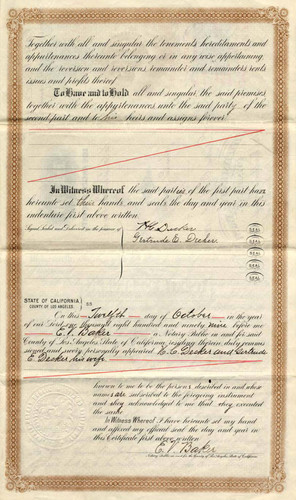 Together with all and singular the tenements hereditaments and
appurtenances thereunto belonging or in any wise appertaining
and the reversion and reversions remainder and remainders rents
issues and profits thereof.
To Have and to Hold all and singular the said premises
together with the appurtenances unto the said party of the
second part and to his heirs and assigns forever
In Witness Whereof the said parties of the first part have
hereunto set their hands and seals the day and year in this
indenture first above written
Signed Sealed and Delivered in the presence of
Decker
Gertrude E. Decker
STATE OF CALIFORNIA
COUNTY OF LOS ANGELES
SS
On this Twelfth day of October in the year
of our Lord one thousand eight hundred and ninety nine before me
E. V. Baker a Notary Public in and for said
County of Los Angeles State of California, residing therein duly
and sworn personally appeared Decker and Gertrude
E. Decker, his wife
known to me to be the persons described in and whose
names are subscribed to the foregoing instrument
and they acknowledged to me that they executed
the same
In Witness Whereof I have hereunto set my hand
and affixed my official seal the day and year in
this Certificate first above written
E. V. Baker
Notary Public in and for the County of Los Angeles State of California